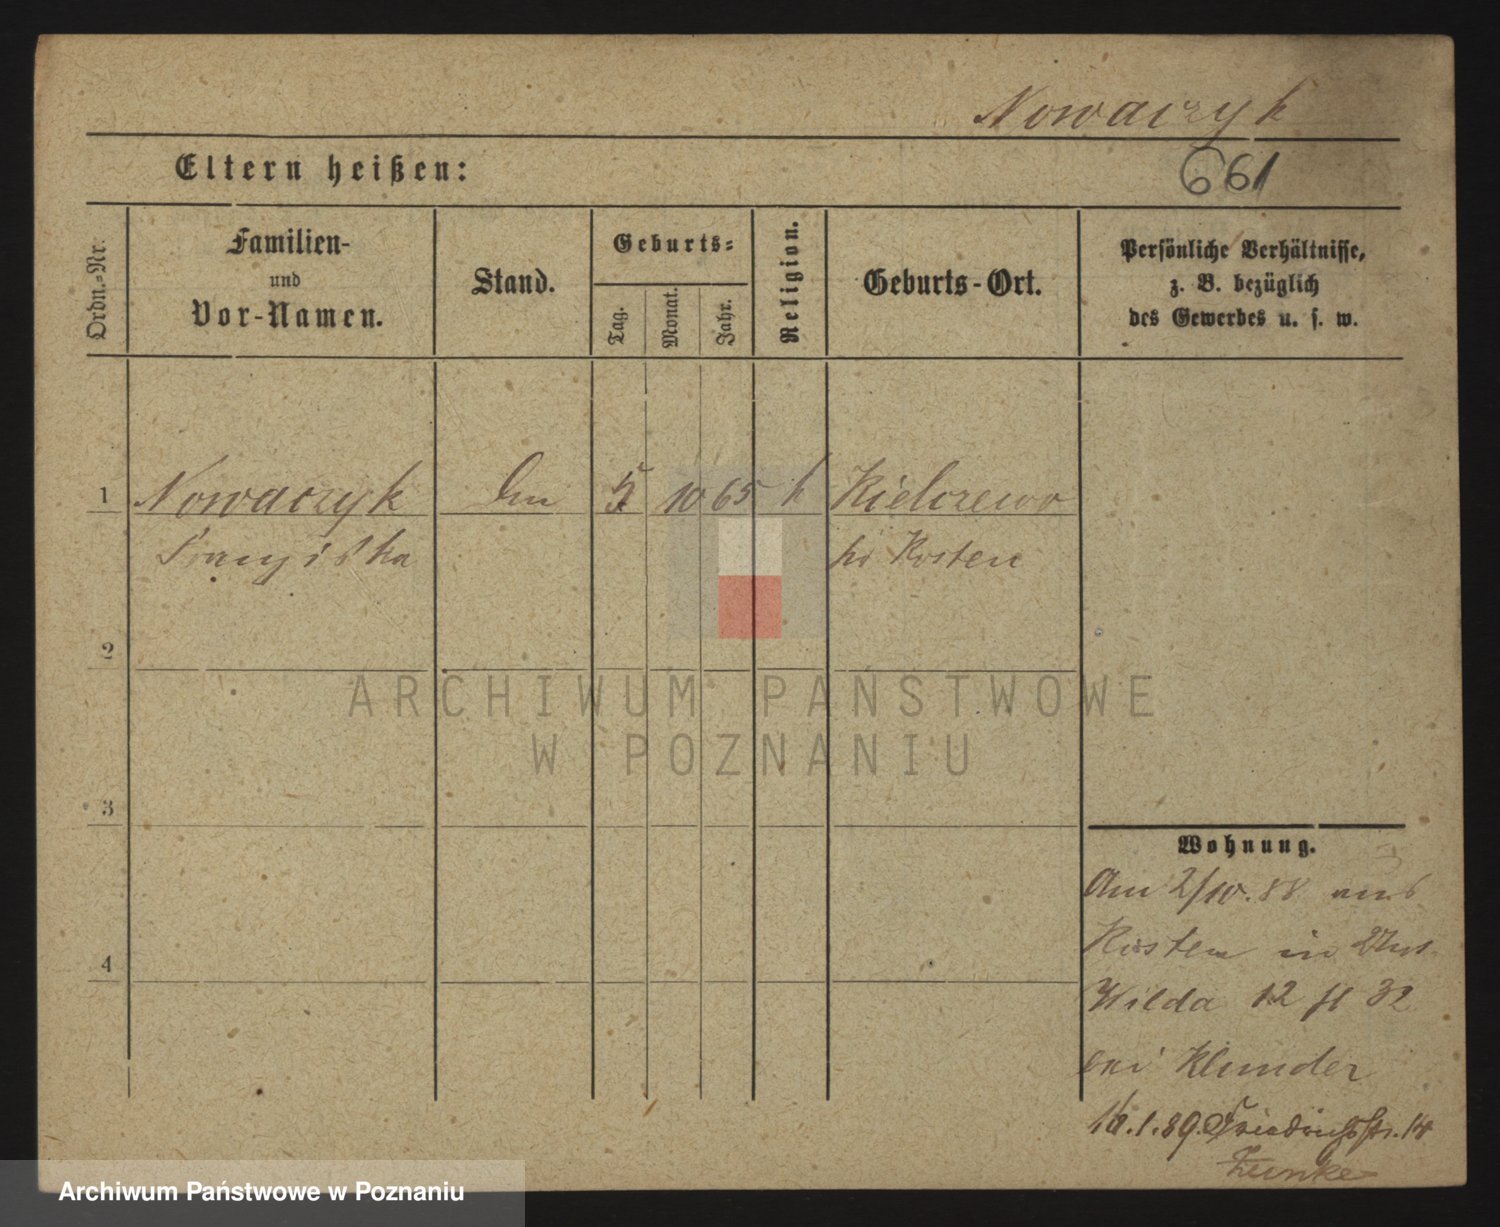 Nowaczyk
Eltern heißen:
661
Ordn.-Nr.
Familien-
und
Vor-Namen.
Stand.
Geburts-
Tag.
Monat.
Jahr.
Religion.
Geburts-Ort.
Persönliche Verhältnisse,
z. B. bezüglich
des Gewerbes u. s. w.
1 Nowaczyk 5 10 65 k Kielczewo
Franziska Kosten
2
3
4
ARCHIWUM PAŃSTWOWE
W POZNANIU
Wohnung.
Am 2/10. 88 aus
Kosten in
Wilda 12 32
bei Klunder
16.1.89. Friedrichstr. 14
Archiwum Państwowe w Poznaniu